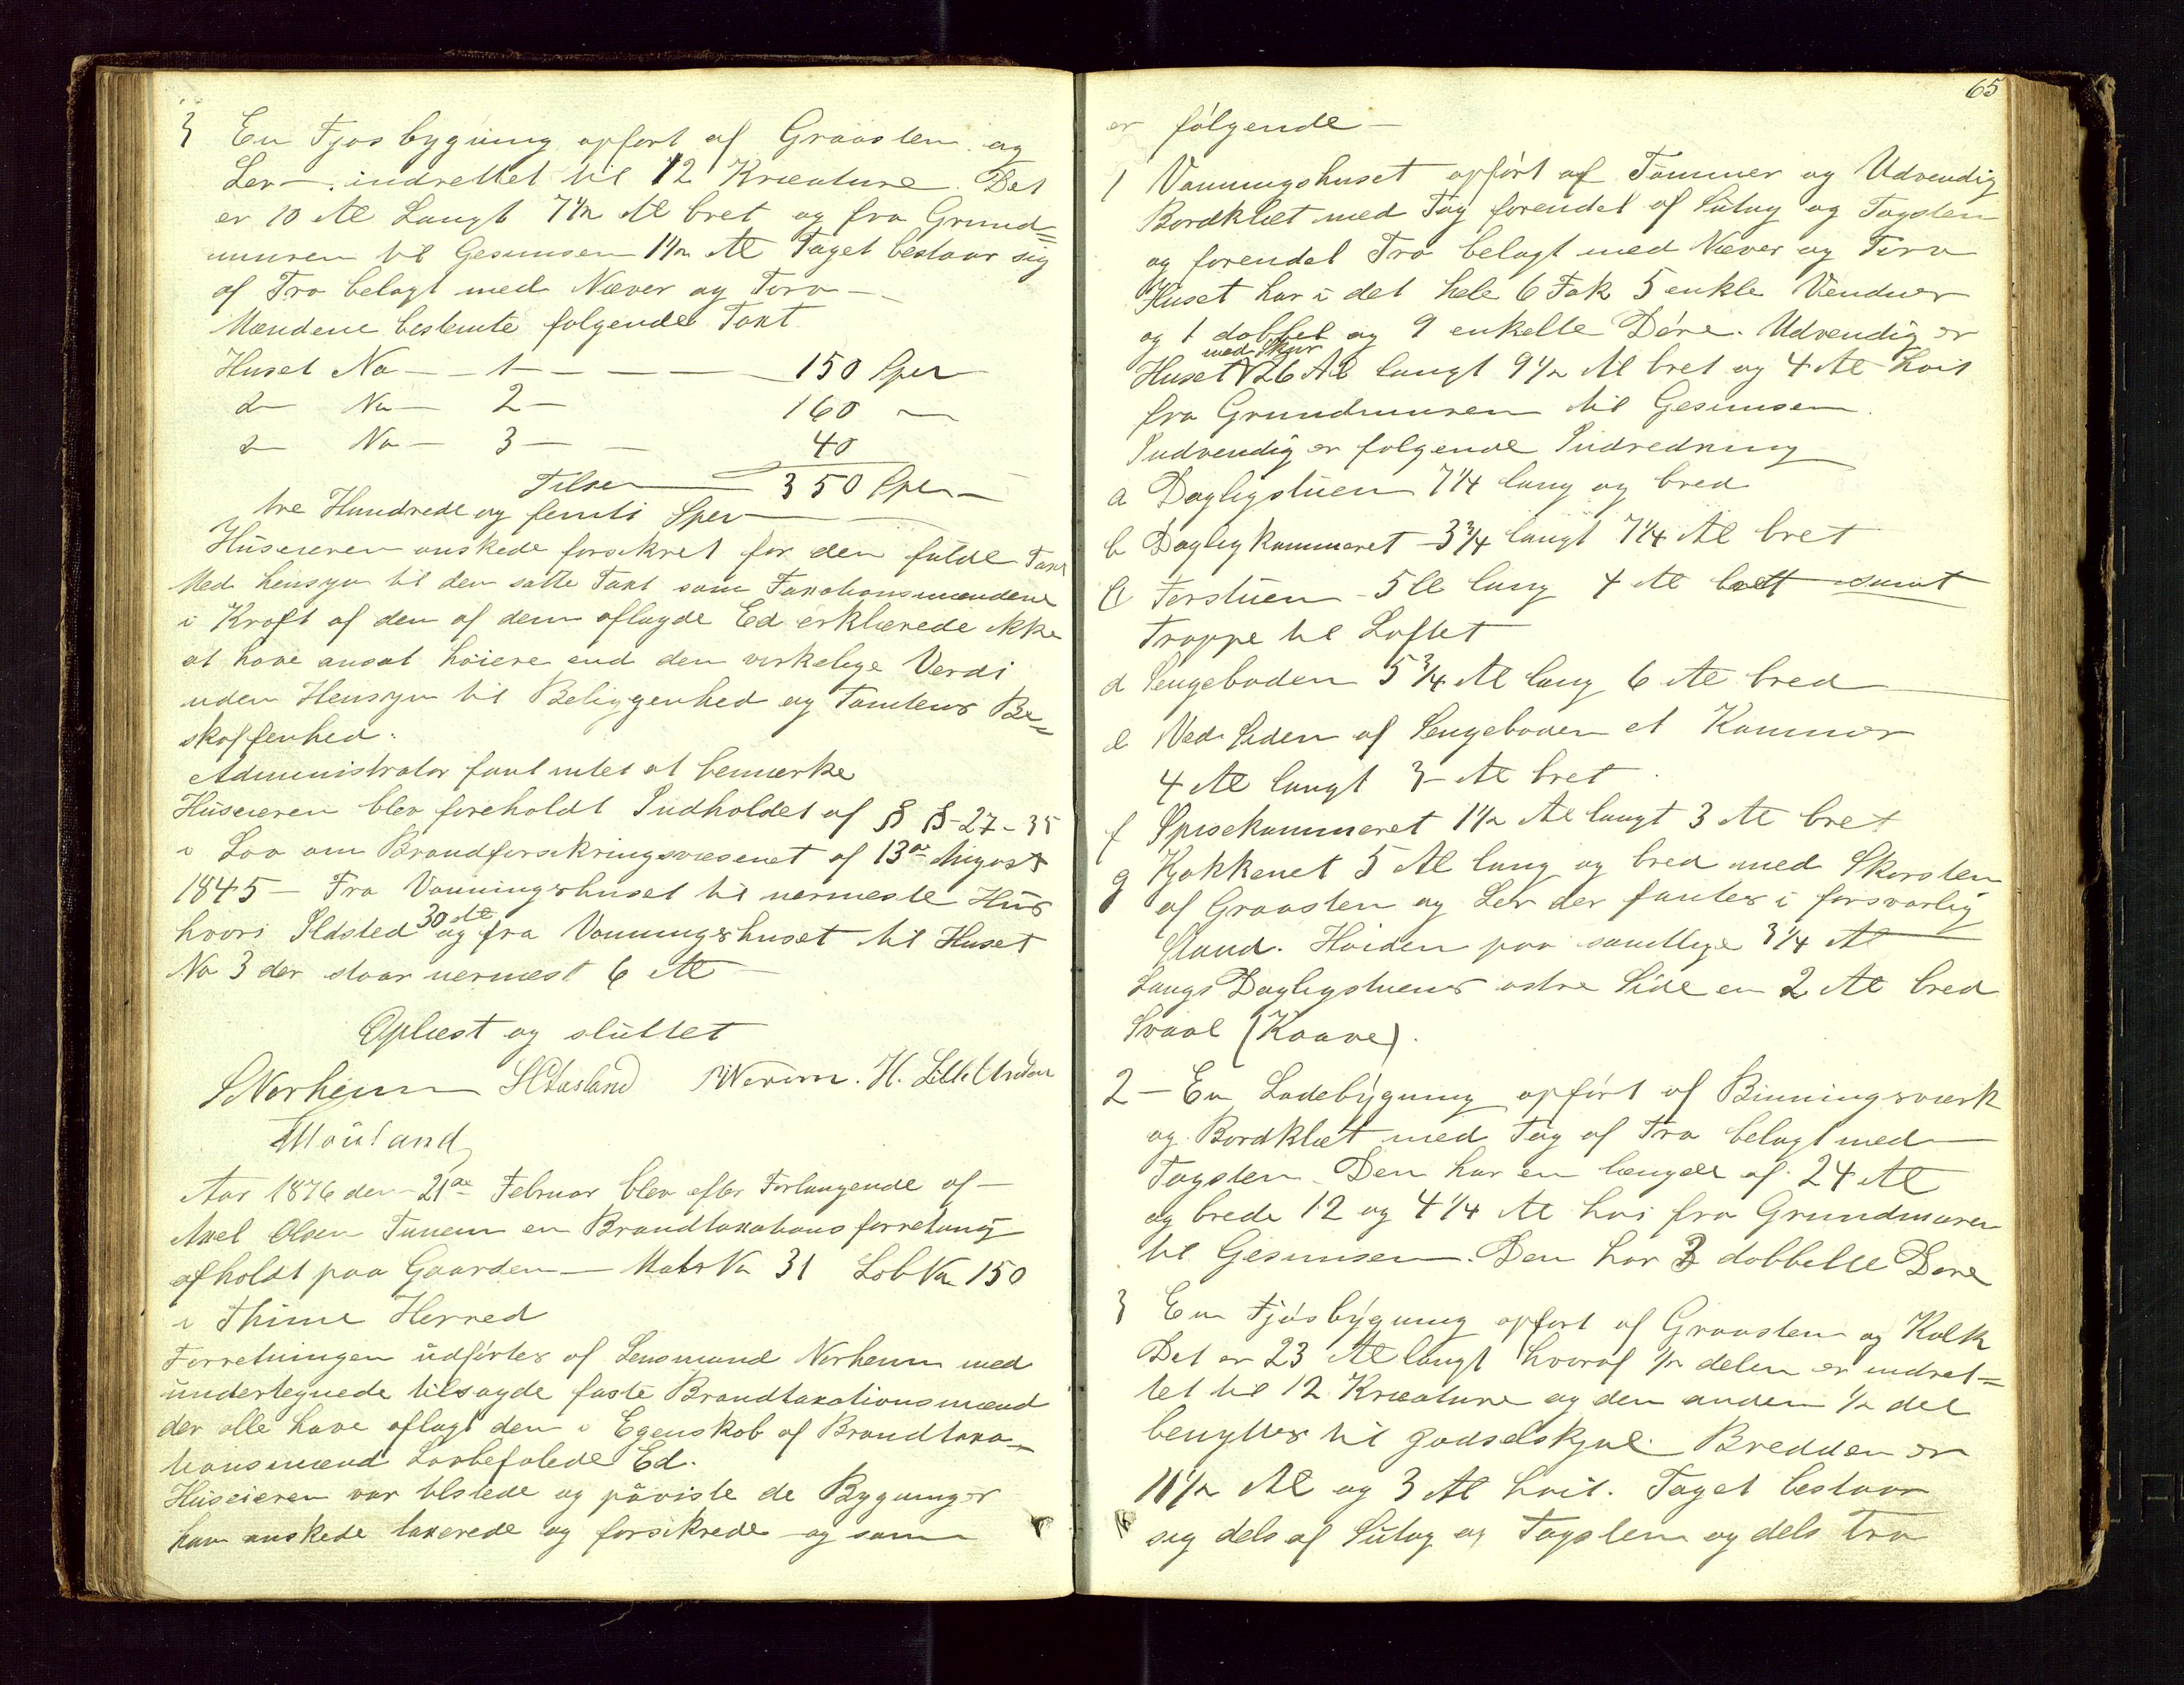 3 En Fjosbygning opført af Graasten og
Ler — indrettet til 12 Kreature. Det
er 10 Al Langt 7 1/2 Al bret og fra Grund=
muren til Gesimsen 1 1/2 Al Taget bestaar sig
af Træ belagt med Næver og Torv —
Mændene bestemte følgende Taxt
Huset No — 1 — 150 Spen
d — No — 2 — 160 —
d — No — 3 — 40
Tilsa 350 Spen —
tre Hundrede og femti Spen —
Huseieren ønskede forsikret for den fulde Taxt
Med hensyn til den satte Taxt som Taxationsmændene
i Kraft af den af dem aflagde Ed erklærede ikke
at have ansat høiere end den virkelige Verdi
uden Hensyn til Beliggenhed og Tomtens Be=
skaffenhed.
Administrator fant intet at bemærke
Huseieren blev foreholdt Indholdet af §§ 27-35
i Lov om Brandforsikringsvæsenet af 13de August
1845 — Fra Vaaningshuset til nermeste Hus
hvori Ildsted 30 Al og fra Vaaningshuset til Huset
No 3 der staar nermest 6 Al —
Oplæst og sluttet
S Norheim H. Lille
Aar 1876 den 21de Februar blev efter Forlangende af —
Axel Olsen Tunem en Brandtaxationsforretning
afholdt paa Gaarden — Matr No 31 Løb No 150
i Thime Herred
Forretningen udførtes af Lensmand Norheim med
undertegnede tilsagde faste Brandtaxationsmænd
der alle have aflagt den i Egenskab af Brandtaxa=
tionsmænd Lovbefalede Ed.
Huseieren var tilstede og påviste de Bygninger
han ønskede taxerede og forsikrede og som
65
er følgende —
1 Vaaningshuset opført af Tømmer og Udvendig
Bordklæt med Tag forendel af Sutag og Tagsten
og forendel Træ belagt med Næver og Torv
Huset har i det hele 6 Fak 5 enkle Vendver
og 1 dobbel og 9 enkelte Døre. Udvendig er
Huset med Skur 26 Al langt 9 1/2 Al bret og 4 Al høit
fra Grundmuren til Gesimsen.
Indvendig er følgende Indredning
a Dagligstuen 7 1/4 lang og bred
b Dagligkammeret 3 3/4 langt 7 1/4 Al bret
c Forstuen 5 Al lang 4 Al bret samt
Trappe til Loftet
d Sengeboden 5 3/4 Al lang 6 Al bred —
e Ved Siden af Sengeboden et Kammer
4 Al langt 3 Al bret
f Spisekammeret 1 1/2 Al langt 3 Al bret
g Kjøkkenet 5 Al lang og bred med Skorsten
af Graasten og Ler der fantes i forsvarlig
Stand. Høiden paa samtlige 3 1/4 Al
Langs Dagligstuens østre Side en 2 Al bred
Svaal (Kaave).
2 — En Ladebygning opført af Binningsværk
og Bordklæt med Tag af Træ belagt med —
Tagsten. Den har en længde af 24 Al
og brede 12 og 4 1/4 Al høi fra Grundmuren
til Gesimsen. Den har 3 dobbelte Døre
3 En Fjøsbygning opført af Graasten og Kalk
Det er 23 Al langt hvoraf 1/2 delen er indret=
tet til 12 Kreature og den anden 1/2 del
benyttes til Gødselskjul. Bredden er
11 1/2 Al og 3 Al høit. Taget bestaar
sig dels af Sutag og Tagsten og dels Træ